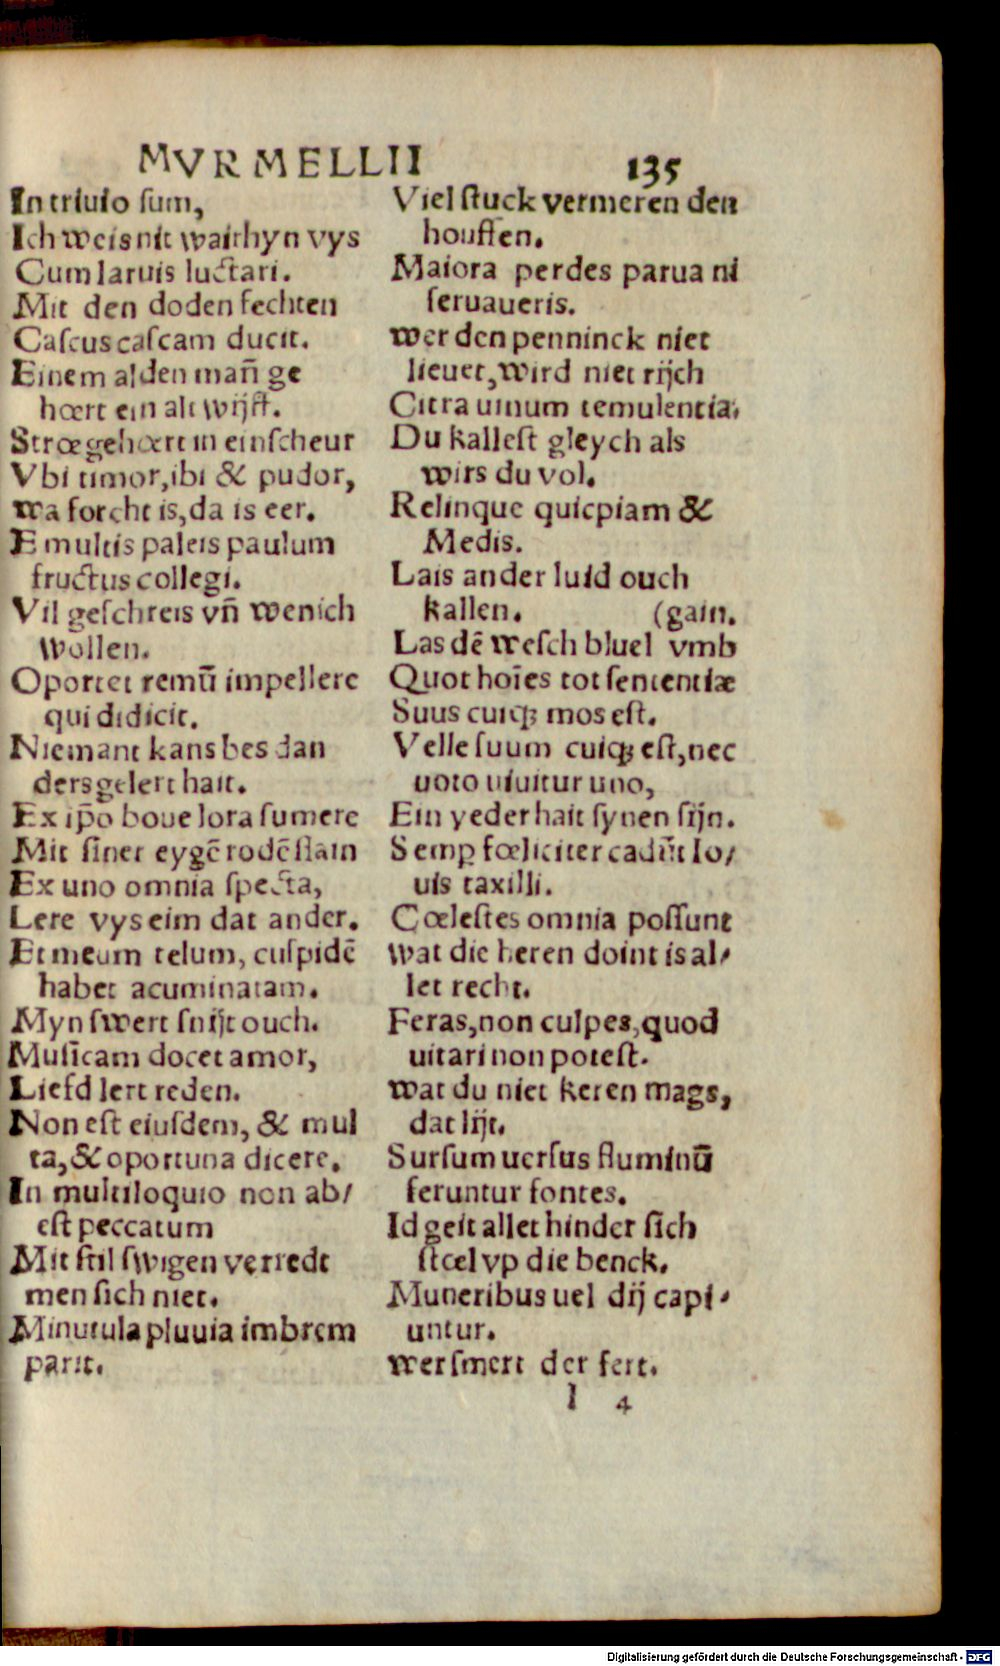 MVRMELLII 135
In triuio ſum,
Ich weis nit wairhyn vys
Cum laruis luctari.
Mit den doden fechten
Caſcus caſcam ducit.
Einem alden mañ ge
hœrt ein alt wijff.
Strœ gehœrt in ein ſcheur
Vbi timor, ibi & pudor,
wa forcht is, da is eer.
E multis paleis paulum
fructus collegi.
Vil geſchreis vñ wenich
wollen.
Oportet remū impellere
qui didicit.
Niemant kans bes dan
ders gelert hait.
Ex ip̄o boue lora ſumere
Mit ſiner eygē rodē ſlain
Ex uno omnia ſpecta,
Lere vys eim dat ander.
Et meum telum, cuſpidē
habet acuminatam.
Myn ſwert ſnijt ouch.
Muſicam docet amor,
Liefd lert reden.
Non eſt eiuſdem, & mul
ta, & oportuna dicere.
In multiloquio non ab/
eſt peccatum
Mit ſtil ſwigen verredt
men ſich niet.
Minutula pluuia imbrem
parit.
Viel ſtuck vermeren den
houffen.
Maiora perdes parua ni
ſeruaueris.
wer den penninck niet
lieuet, wird niet rijch
Citra uinum temulentia,
Du kalleſt gleych als
wirs du vol.
Relinque quicpiam &
Medis.
Lais ander luid ouch
kallen. (gain.
Las dē weſch bluel vmb
Quot hoīes tot ſententiæ
Suus cuiqȝ mos eſt.
Velle ſuum cuiqȝ eſt, nec
uoto uiuitur uno,
Ein yeder hait ſynen ſijn.
Semp fœliciter cadūt Io/
uis taxilli.
Cœleſtes omnia poſſunt
wat die heren doint is al/
let recht.
Feras, non culpes, quod
uitari non poteſt.
wat du niet keren mags,
dat lijt.
Surſum uerſus fluminū
feruntur fontes.
Id geit allet hinder ſich
ſtœl vp die benck.
Muneribus uel dij capi/
untur.
wer ſmert der fert.
I 4
Digitalisierung gefördert durch die Deutsche Forschungsgemeinschaft - DFG